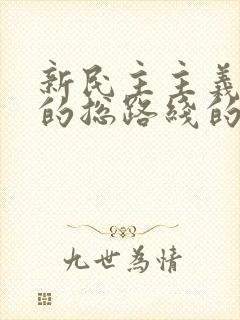 新民主主義
的总路线的
九世為情